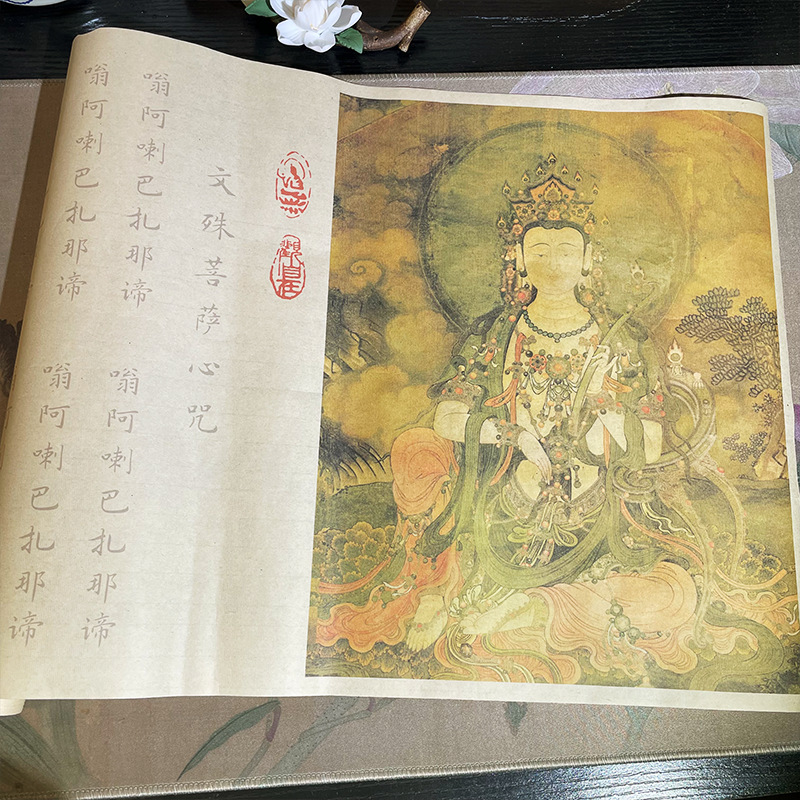 觀自在
文殊菩萨心咒
嗡阿喇巴扎那谛 嗡阿喇巴扎那谛
嗡阿喇巴扎那谛 嗡阿喇巴扎那谛